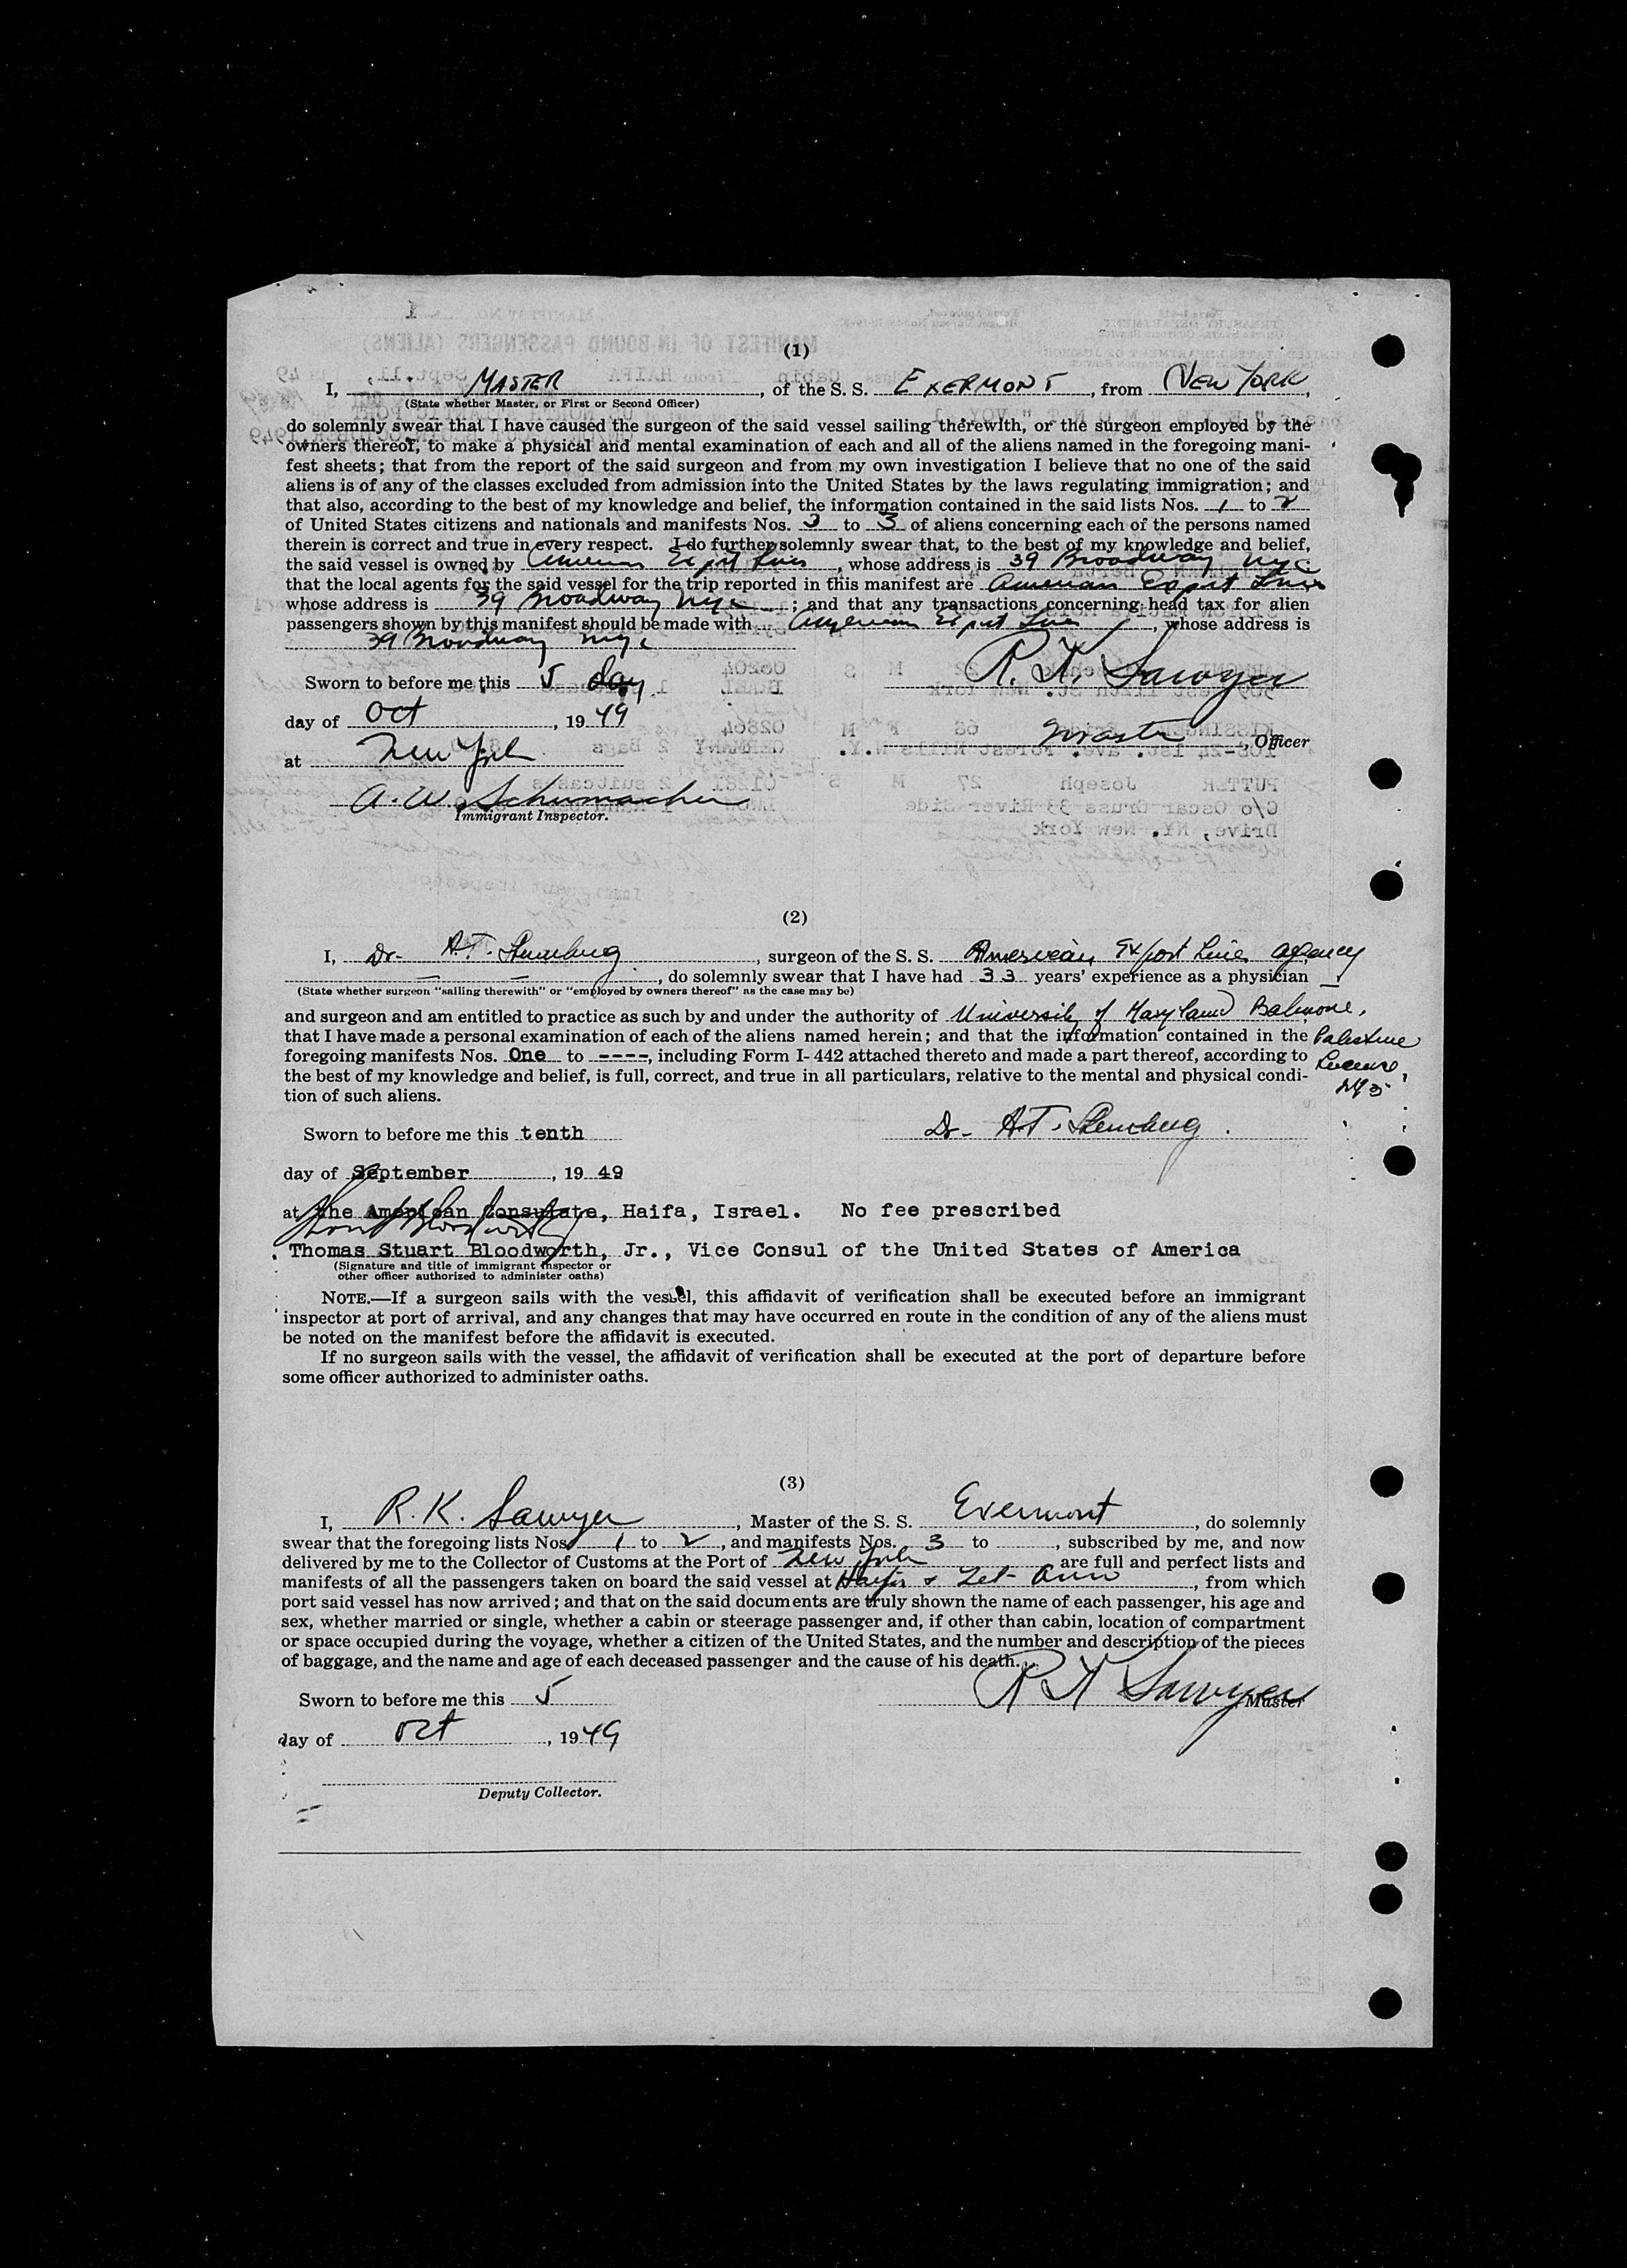 (1)
I, MASTER, of the S. S. EXERMONT, from NEW YORK,
(State whether Master, or First or Second Officer)
do solemnly swear that I have caused the surgeon of the said vessel sailing therewith, or the surgeon employed by the
owners thereof, to make a physical and mental examination of each and all of the aliens named in the foregoing mani-
fest sheets; that from the report of the said surgeon and from my own investigation I believe that no one of the said
aliens is of any of the classes excluded from admission into the United States by the laws regulating immigration; and
that also, according to the best of my knowledge and belief, the information contained in the said lists Nos. 1 to 2
of United States citizens and nationals and manifests Nos. 3 to 3 of aliens concerning each of the persons named
therein is correct and true in every respect. I do further solemnly swear that, to the best of my knowledge and belief,
the said vessel is owned by American Export Lines, whose address is 39 Broadway NYC
that the local agents for the said vessel for the trip reported in this manifest are American Export Lines
whose address is 39 Broadway NYC; and that any transactions concerning head tax for alien
passengers shown by this manifest should be made with American Export Lines, whose address is
39 Broadway NYC
R. K. Sawyer
Sworn to before me this 5 day
day of Oct, 1949
Master, Officer
at New York
A. W. Schumacher
Immigrant Inspector.
(2)
I, Dr. A.T., surgeon of the S. S. American Export Line agency
, do solemnly swear that I have had 33 years' experience as a physician
(State whether surgeon "sailing therewith" or "employed by owners thereof" as the case may be)
and surgeon and am entitled to practice as such by and under the authority of University of Maryland
that I have made a personal examination of each of the aliens named herein; and that the information contained in the Palestine
foregoing manifests Nos. One to ----, including Form I-442 attached thereto and made a part thereof, according to
the best of my knowledge and belief, is full, correct, and true in all particulars, relative to the mental and physical condi-
tion of such aliens.
Sworn to before me this tenth
Dr. A.T.
day of September, 1949
at the American Consulate, Haifa, Israel. No fee prescribed
Thomas Stuart Bloodworth, Jr., Vice Consul of the United States of America
(Signature and title of immigrant inspector or
other officer authorized to administer oaths)
NOTE.—If a surgeon sails with the vessel, this affidavit of verification shall be executed before an immigrant
inspector at port of arrival, and any changes that may have occurred en route in the condition of any of the aliens must
be noted on the manifest before the affidavit is executed.
If no surgeon sails with the vessel, the affidavit of verification shall be executed at the port of departure before
some officer authorized to administer oaths.
(3)
I, R. K. Sawyer, Master of the S. S. Exermont, do solemnly
swear that the foregoing lists Nos. 1 to 2, and manifests Nos. 3 to, subscribed by me, and now
delivered by me to the Collector of Customs at the Port of New York are full and perfect lists and
manifests of all the passengers taken on board the said vessel at Haifa &, from which
port said vessel has now arrived; and that on the said documents are truly shown the name of each passenger, his age and
sex, whether married or single, whether a cabin or steerage passenger and, if other than cabin, location of compartment
or space occupied during the voyage, whether a citizen of the United States, and the number and description of the pieces
of baggage, and the name and age of each deceased passenger and the cause of his death.
R K Sawyer Master
Sworn to before me this 5
day of Oct, 1949
Deputy Collector.